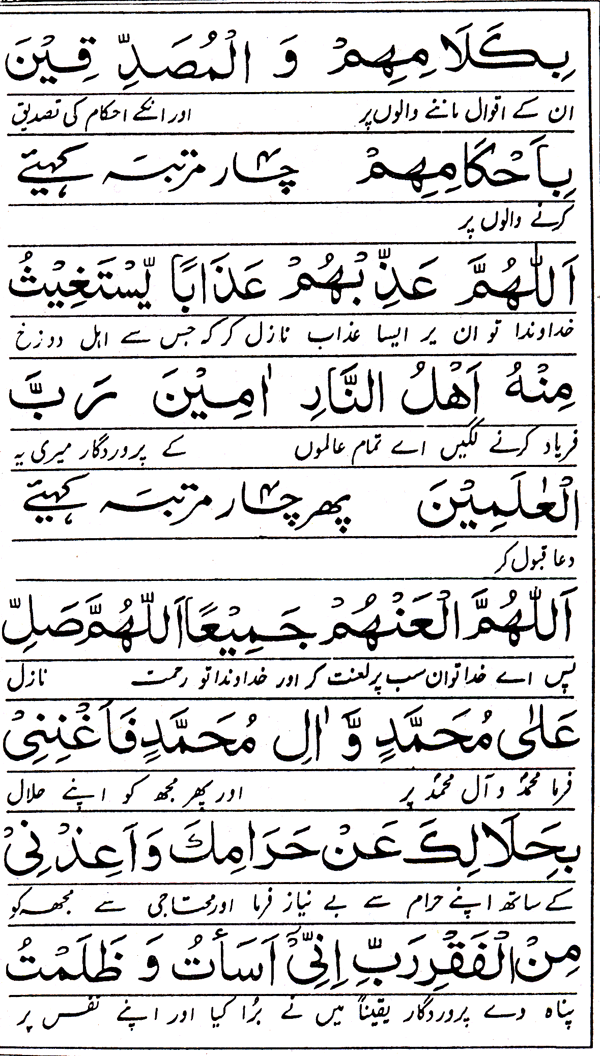 بِكَلَامِهِمْ وَ الْمُصَدِّقِيْنَ
ان کے اقوال ماننے والوں پر اور انکے احکام کی تصدیق
بِاَحْكَامِهِمْ چار مرتبہ کہیئے
کرنے والوں پر
اَللّٰهُمَّ عَذِّبْهُمْ عَذَابًا يَّسْتَغِيْثُ
خداوندا تو ان پر ایسا عذاب نازل کر کہ جس سے اہل دوزخ
مِنْهُ اَهْلُ النَّارِ اٰمِيْنَ رَبَّ
فریاد کرنے لگیں اے تمام عالموں کے پروردگار میری یہ
الْعٰلَمِيْنَ پھر چار مرتبہ کہیئے
دعا قبول کر
اَللّٰهُمَّ الْعَنْهُمْ جَمِيْعًا اَللّٰهُمَّ صَلِّ
پس اے خدا تو ان سب پر لعنت کر اور خداوندا تو رحمت نازل
عَلٰى مُحَمَّدٍ وَّ اٰلِ مُحَمَّدٍ فَاَغْنِنِيْ
فرما محمدؐ و آل محمدؐ پر اور پھر مجھ کو اپنے حلال
بِحَلَالِكَ عَنْ حَرَامِكَ وَ اَعِذْنِيْ
کے ساتھ اپنے حرام سے بے نیاز فرما اور محتاجی سے مجھ کو
مِنَ الْفَقْرِ رَبِّ اِنِّيْ اَسَأْتُ وَ ظَلَمْتُ
پناہ دے پروردگار یقیناً میں نے برُا کیا اور اپنے نفس پر